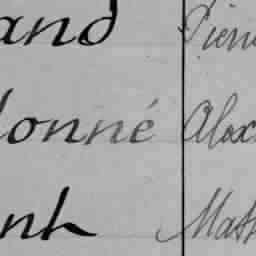 and Pierr
donné Alex
nh Math